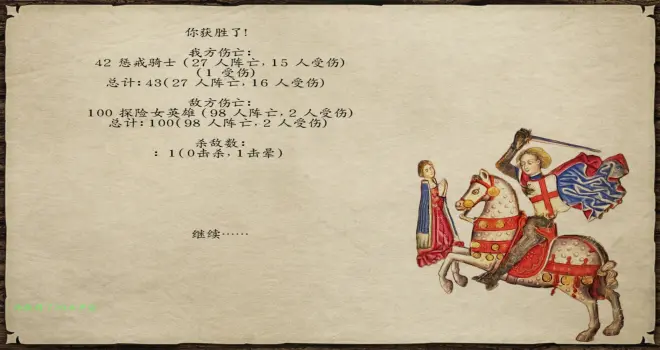 你获胜了!
我方伤亡:
42 惩戒骑士 (27 人阵亡, 15 人受伤)
(1 受伤)
总计: 43(27 人阵亡, 16 人受伤)
敌方伤亡:
100 探险女英雄 (98 人阵亡, 2 人受伤)
总计: 100(98 人阵亡, 2 人受伤)
杀敌数:
: 1(0击杀, 1击晕)
继续……